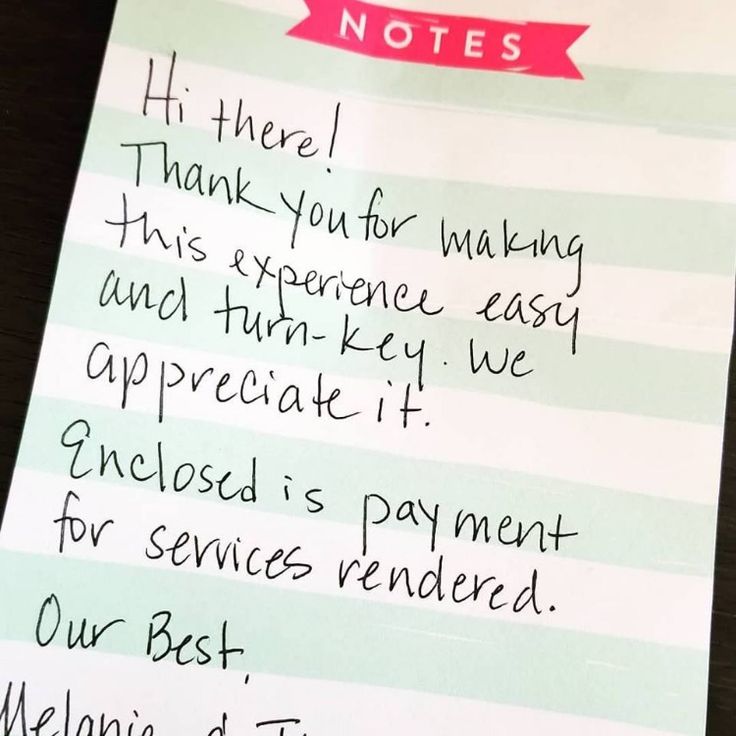 NOTES
Hi there!
Thank you for making
this experience easy
and turn-key. We
appreciate it.
Enclosed is payment
for services rendered.
Our Best,
Melanie